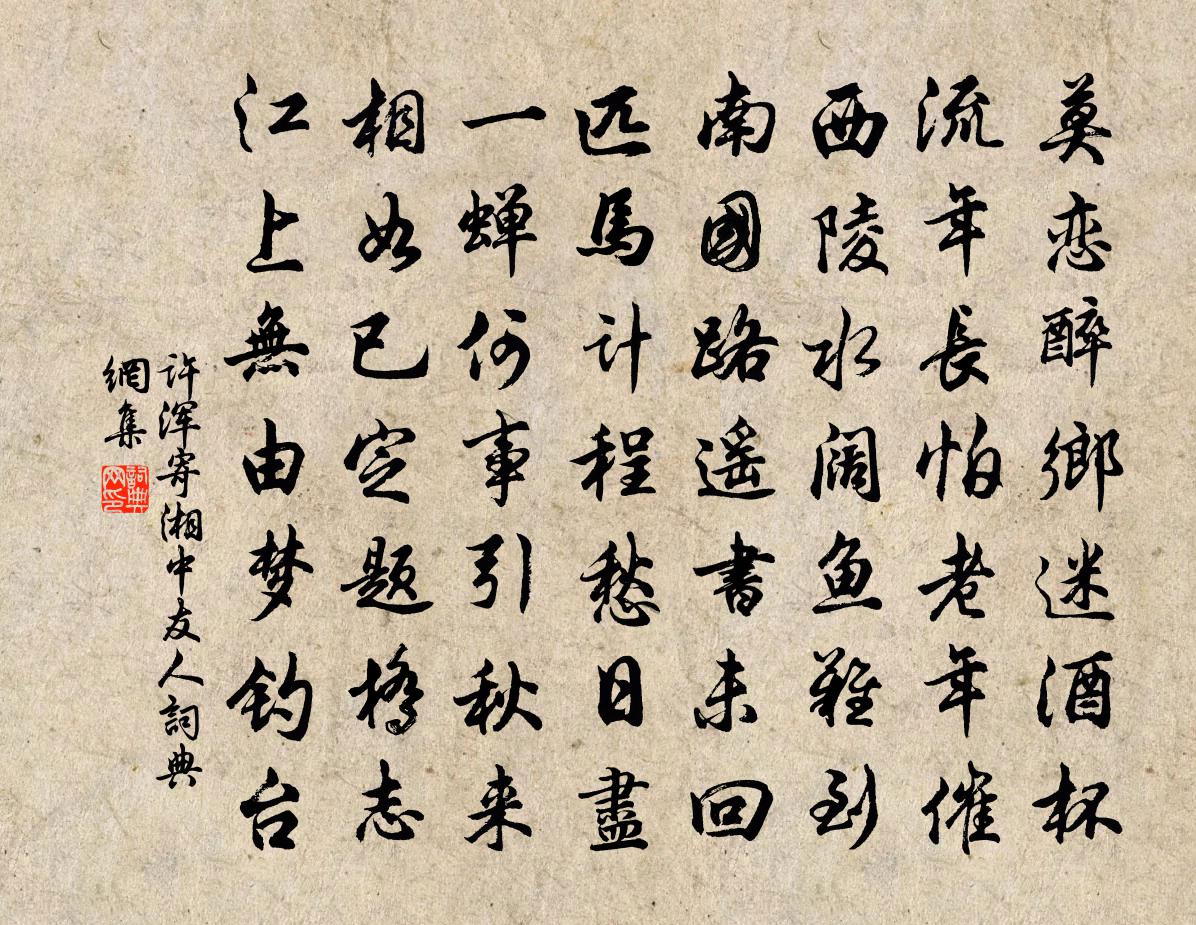 莫恋醉鄉迷酒杯
流年長怕老年催
西陵水阔鱼難到
南國路遥書未回
匹馬计程愁日盡
一蝉何事引秋来
相如已定题橋志
江上無由梦钓台
许浑寄湘中友人詞典
網集
詞典
网印